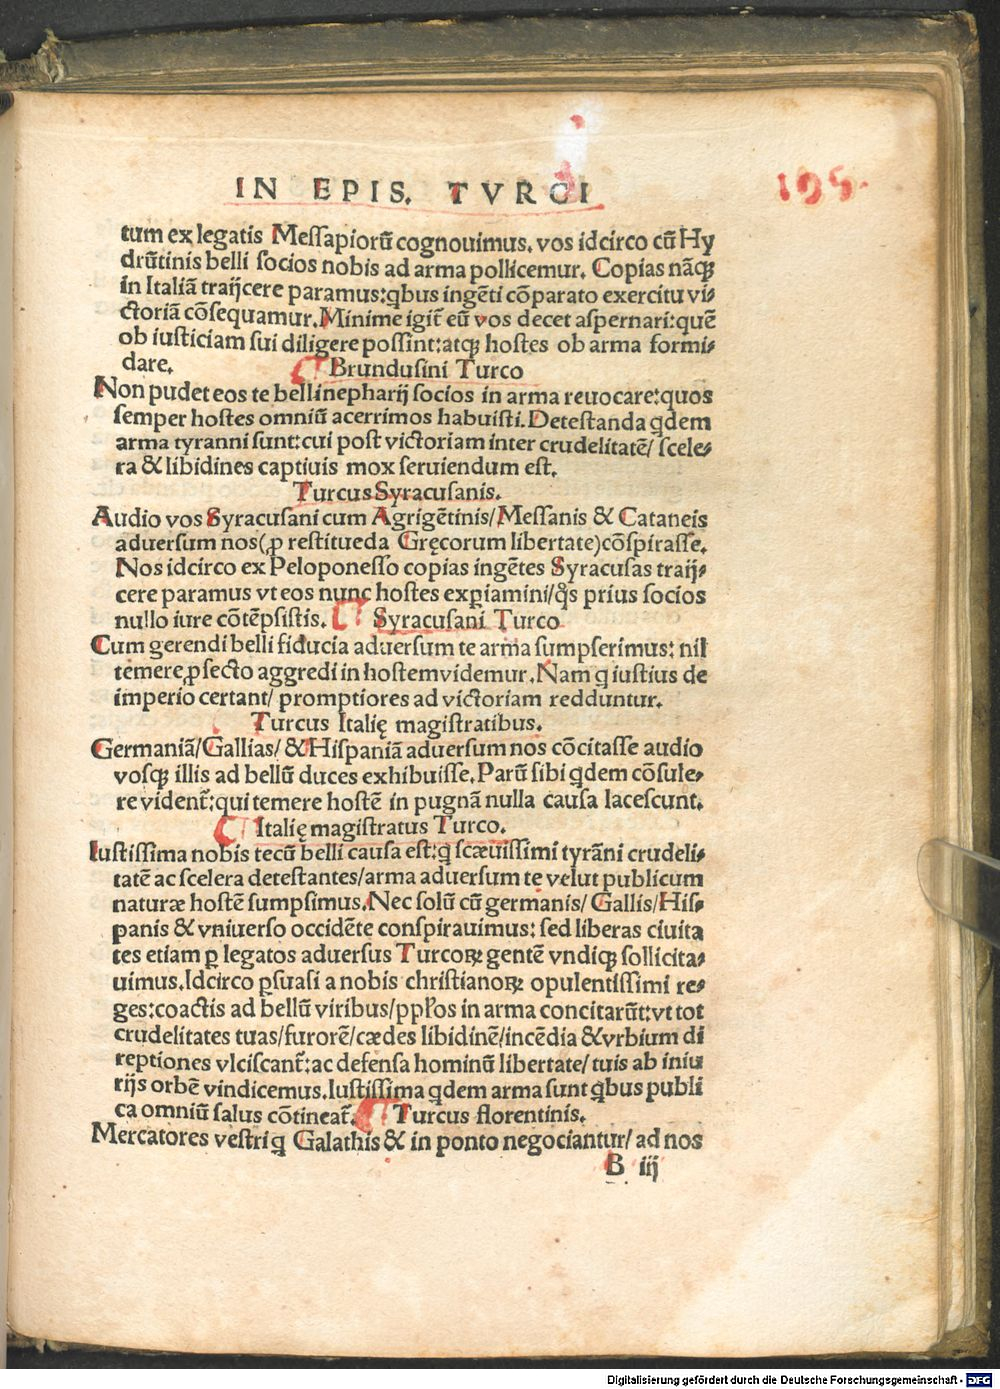 IN EPIS. TVRCI
195.
tum ex legatis Meſſapiorū cognouimus. vos idcirco cū Hy
drūtinis belli ſocios nobis ad arma pollicemur. Copias nāqꝫ
in Italiā traijcere paramus: qbus ingēti cōparato exercitu vi⸗
ctoriā cōſequamur. Minime igit̃ eū vos decet aſpernari: quē
ob iuſticiam ſui diligere poſſint: atqꝫ hoſtes ob arma formi⸗
dare. Brunduſini Turco
Non pudet eos te bellinepharij ſocios in arma reuocare: quos
ſemper hoſtes omniū acerrimos habuiſti. Deteſtanda qdem
arma tyranni ſunt: cui poſt victoriam inter crudelitatē/ ſcele⸗
ra & libidines captiuis mox ſeruiendum eſt.
Turcus Syracuſanis.
Audio vos Syracuſani cum Agrigētinis/ Meſſanis & Cataneis
aduerſum nos (ꝓ reſtitueda Gręcorum libertate) cōſpiraſſe.
Nos idcirco ex Peloponeſſo copias ingētes Syracuſas traij⸗
cere paramus vt eos nunc hoſtes exꝑiamini/ q̄s prius ſocios
nullo iure cōtēpſiſtis. Syracuſani Turco
Cum gerendi belli fiducia aduerſum te arma ſumpſerimus: nil
temere ꝓfecto aggredi in hoſtem videmur. Nam q iuſtius de
imperio certant/ promptiores ad victoriam redduntur.
Turcus Italię magiſtratibus.
Germaniā/ Gallias/ & Hiſpaniā aduerſum nos cōcitaſſe audio
voſqꝫ illis ad bellū duces exhibuiſſe. Parū ſibi qdem cōſule⸗
re vident̃: qui temere hoſtē in pugnā nulla cauſa laceſcunt.
Italię magiſtratus Turco.
Iuſtiſſima nobis tecū belli cauſa eſt: q ſcæuiſſimi tyrāni crudeli⸗
tatē ac ſcelera deteſtantes/ arma aduerſum te velut publicum
naturæ hoſtē ſumpſimus. Nec ſolū cū germanis/ Gallis/ Hiſ⸗
panis & vniuerſo occidēte conſpirauimus: ſed liberas ciuita
tes etiam ꝑ legatos aduerſus Turcoꝝ gentē vndiqꝫ ſollicita⸗
uimus. Idcirco ꝑſuaſi a nobis chriſtianoꝝ opulentiſſimi re⸗
ges: coactis ad bellū viribus/ ppłos in arma concitarūt: vt tot
crudelitates tuas/ furorē/ cædes libidinē/ incēdia & vrbium di
reptiones vlciſcant̃: ac defenſa hominū libertate/ tuis ab iniu
rijs orbē vindicemus. Iuſtiſſima qdem arma ſunt qbus publi
ca omniū ſalus cōtineat̃. Turcus florentinis.
Mercatores veſtri q Galathis & in ponto negociantur/ ad nos
B iij
Digitalisierung gefördert durch die Deutsche Forschungsgemeinschaft - DFG